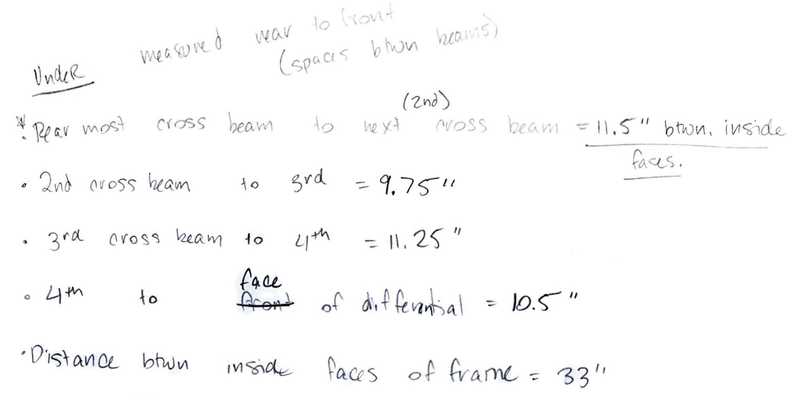 measured rear to front
(spaces btwn beams)
Under
(2nd)
* Rear most cross beam to next cross beam = 11.5" btwn. inside
faces.
• 2nd cross beam to 3rd = 9.75"
• 3rd cross beam to 4th = 11.25"
face
• 4th to front of differential = 10.5"
• Distance btwn inside faces of frame = 33"